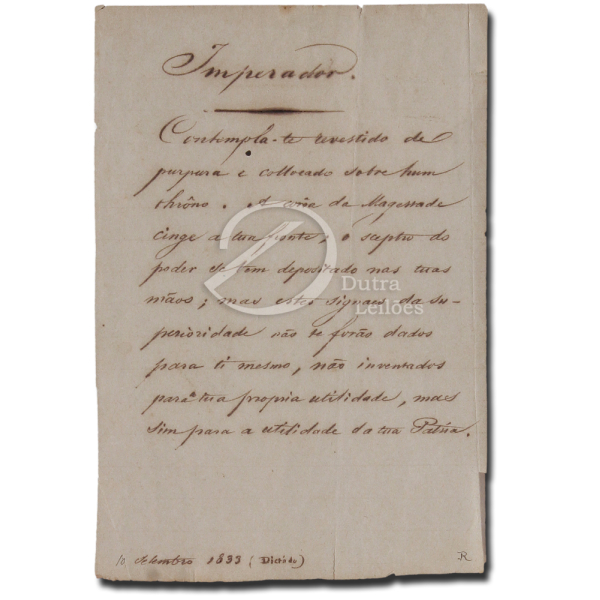 Imperador.
Contempla-te revestido de
purpura e collocado sobre hum
thrôno. A corôa da Magestade
cinge a tua fronte; o sceptro do
poder se tem depositado nas tuas
mãos; mas estes signaes da su-
perioridade não te forão dados
para ti mesmo, não inventados
para tua propria utilidade, mas
sim para a utilidade da tua Patria.
Dutra
Leilões
10, setembro 1833 (Dictado)
R